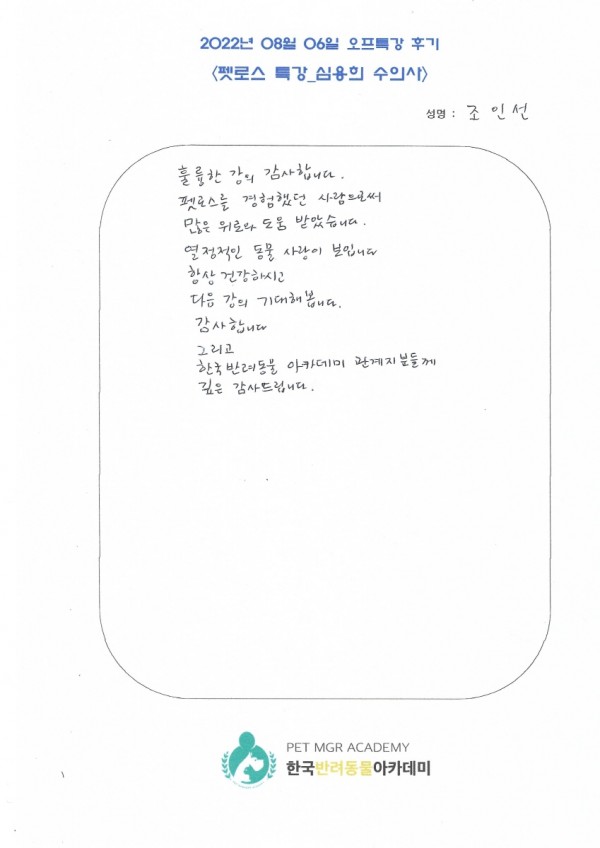 2022년 08월 06일 오프특강 후기
<펫로스 특강_심용희 수의사>
성명 : 조인선
훌륭한 강의 감사합니다.
펫로스를 경험했던 사람으로써
많은 위로와 도움 받았습니다.
열정적인 동물 사랑이 보입니다
항상 건강하시고
다음 강의 기대해봅니다.
감사합니다
그리고
한국반려동물 아카데미 관계자분들께
깊은 감사드립니다.
PET MGR ACADEMY
한국반려동물아카데미